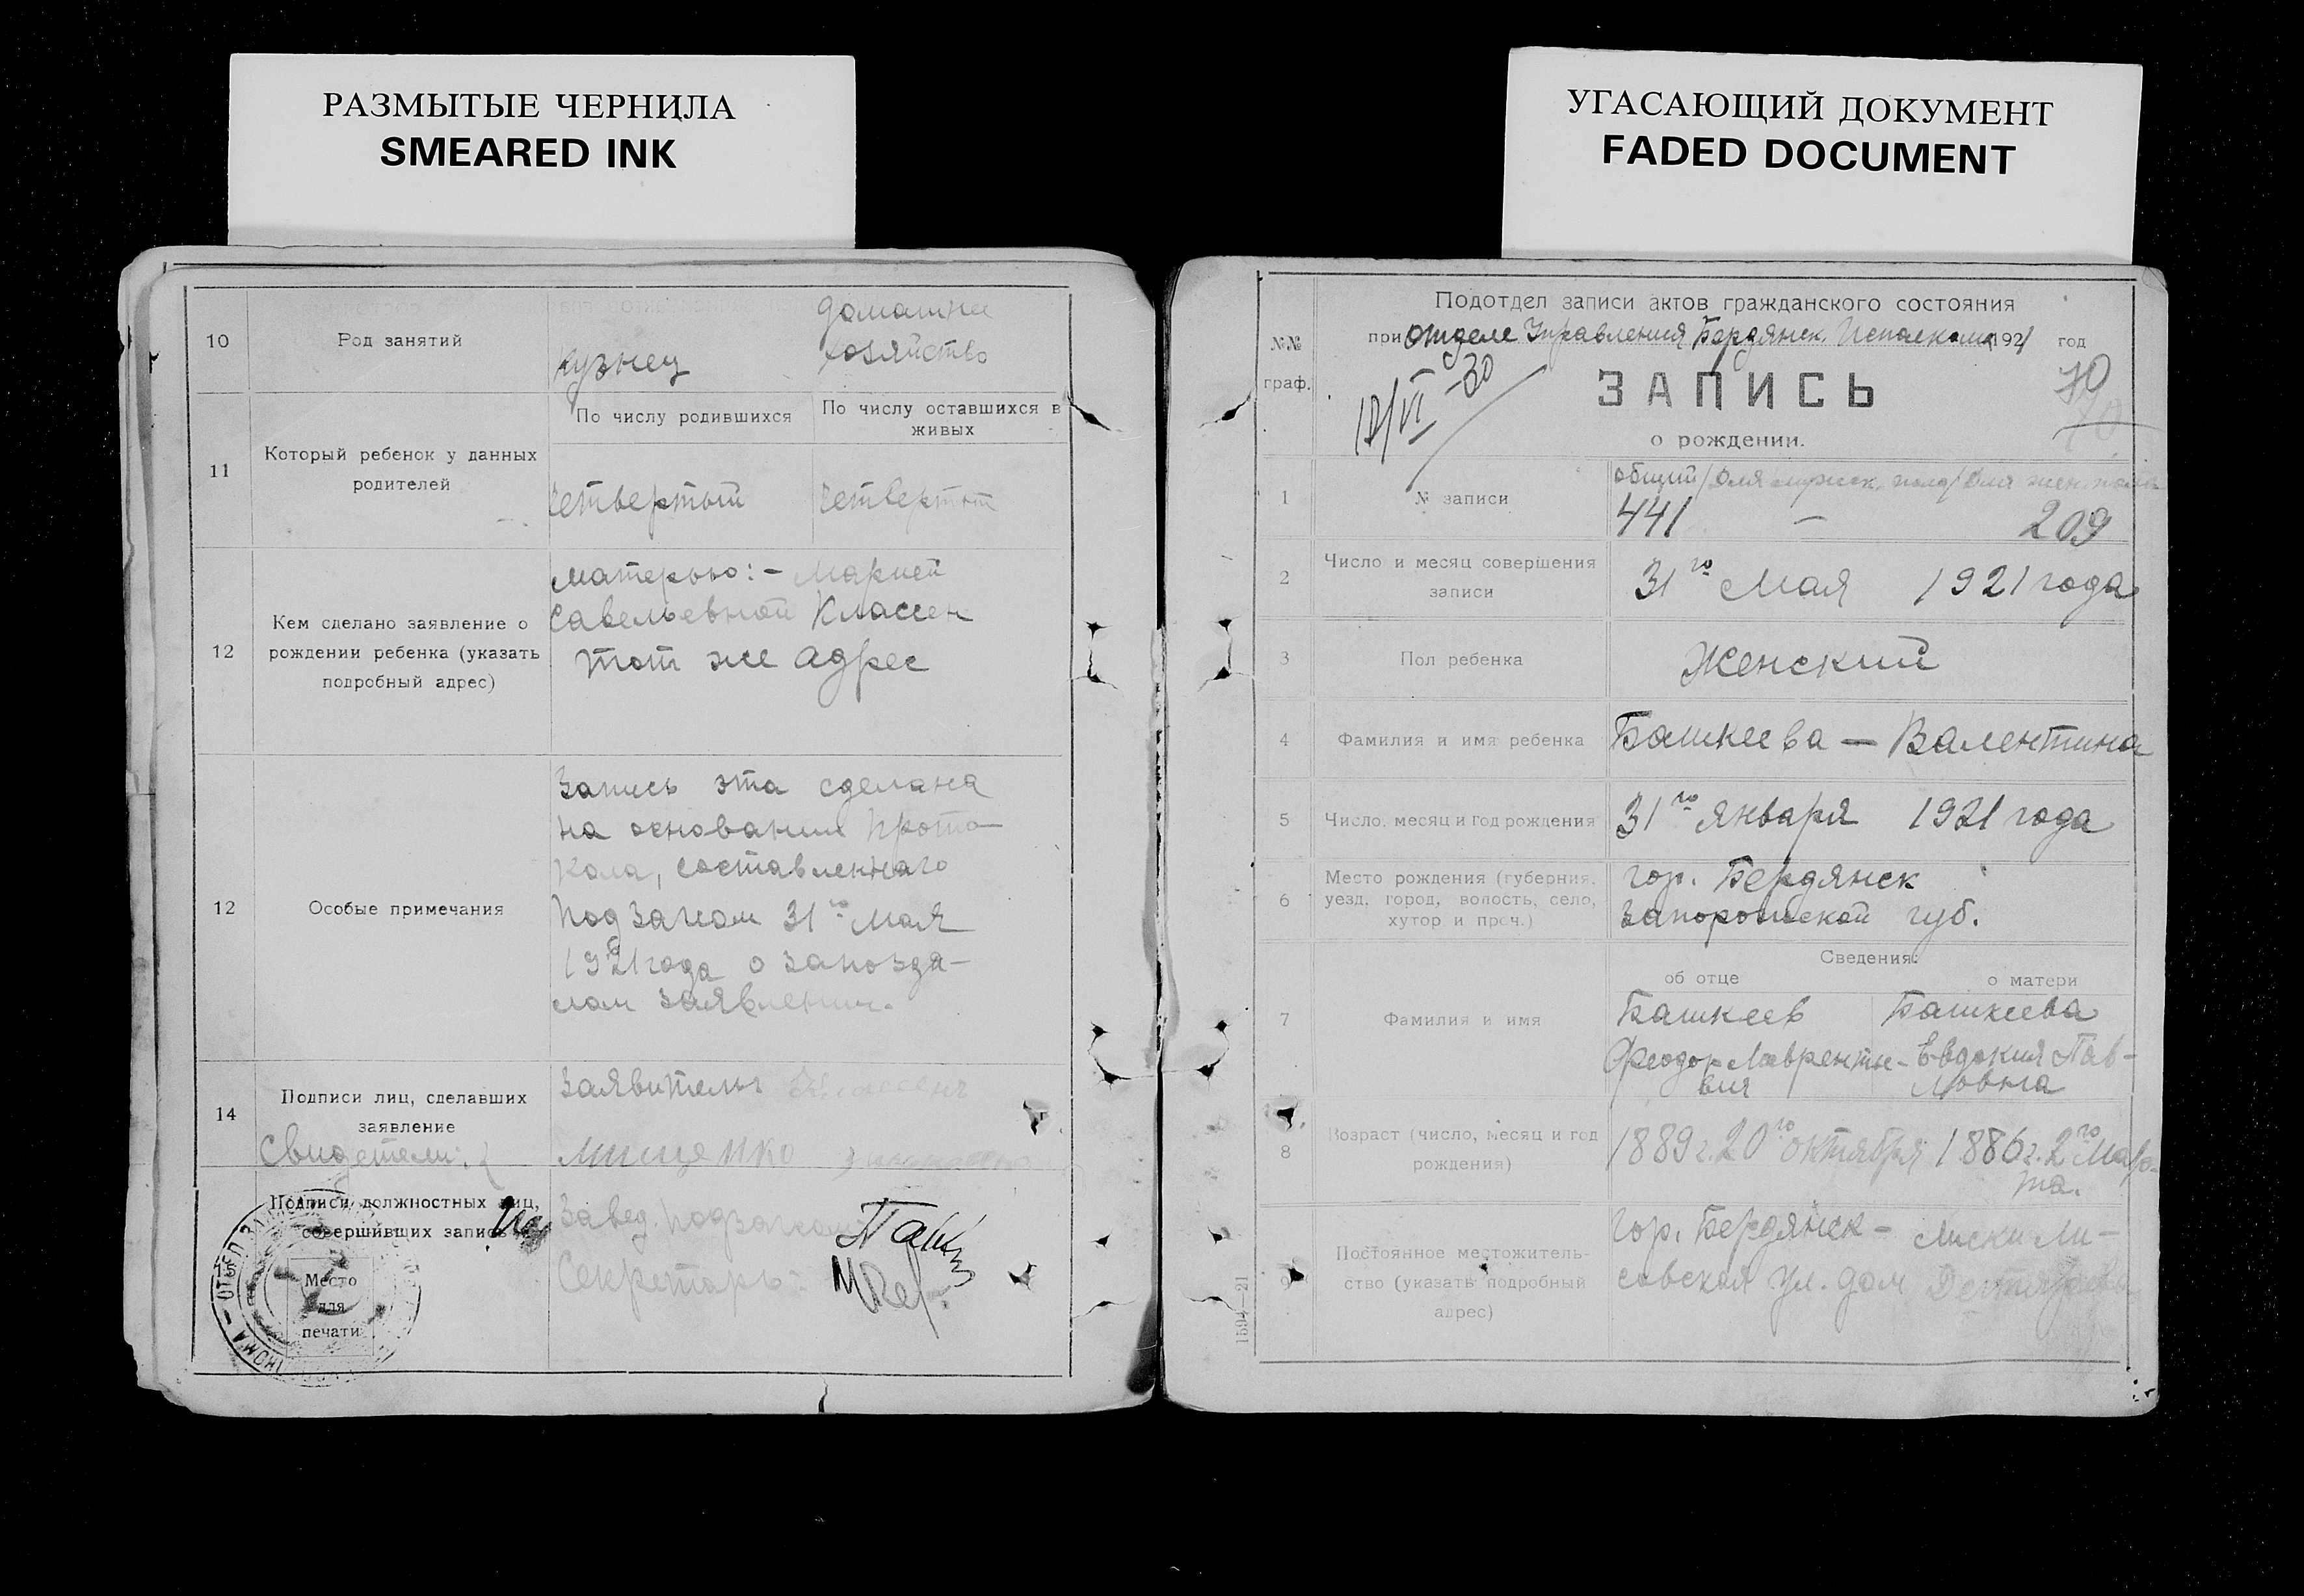 РАЗМЫТЫЕ ЧЕРНИЛА
SMEARED INK
УГАСАЮЩИЙ ДОКУМЕНТ
FADED DOCUMENT
10
Род занятий
кузнец
домашнее
хозяйство
11
Который ребенок у данных
родителей
По числу родившихся
По числу оставшихся в
живых
четвертый
четвертый
12
Кем сделано заявление о
рождении ребенка (указать
подробный адрес)
матерью: - Марией
Савельевной Классен
тот же адрес
12
Особые примечания
Запись эта сделана
на основании прото-
кола, составленного
Подзагсом 31го мая
1921 года о запозда-
лом заявлении.
14
Подписи лиц, сделавших
заявление
Свидетели:
Заявитель: Классен
Мищенко
15
Подписи должностных лиц,
совершивших запись
Место
для
печати
Завед. подзагсом
Секретарь:
Подотдел записи актов гражданского состояния
при отделе Управления Бердянск. Исполкома 1921 год
№№
граф.
12/VI -30
ЗАПИСЬ
70
о рождении.
1
№ записи
общий / для мужск. пола / для жен. пола
441 — 209
2
Число и месяц совершения
записи
31го Мая 1921 года
3
Пол ребенка
Женский
4
Фамилия и имя ребенка
Башкеева — Валентина
5
Число, месяц и год рождения
31го января 1921 года
6
Место рождения (губерния,
уезд, город, волость, село,
хутор и проч.)
гор. Бердянск
Запорожской губ.
Сведения:
об отце
о матери
7
Фамилия и имя
Башкеев
Феодор Лаврентье-
вич
Башкеева
Евдокия Пав-
ловна
8
Возраст (число, месяц и год
рождения)
1889 г. 20го октября
1886 г. 2го Мар-
та.
9
Постоянное местожитель-
ство (указать подробный
адрес)
гор. Бердянск -
ул. дом
159—21